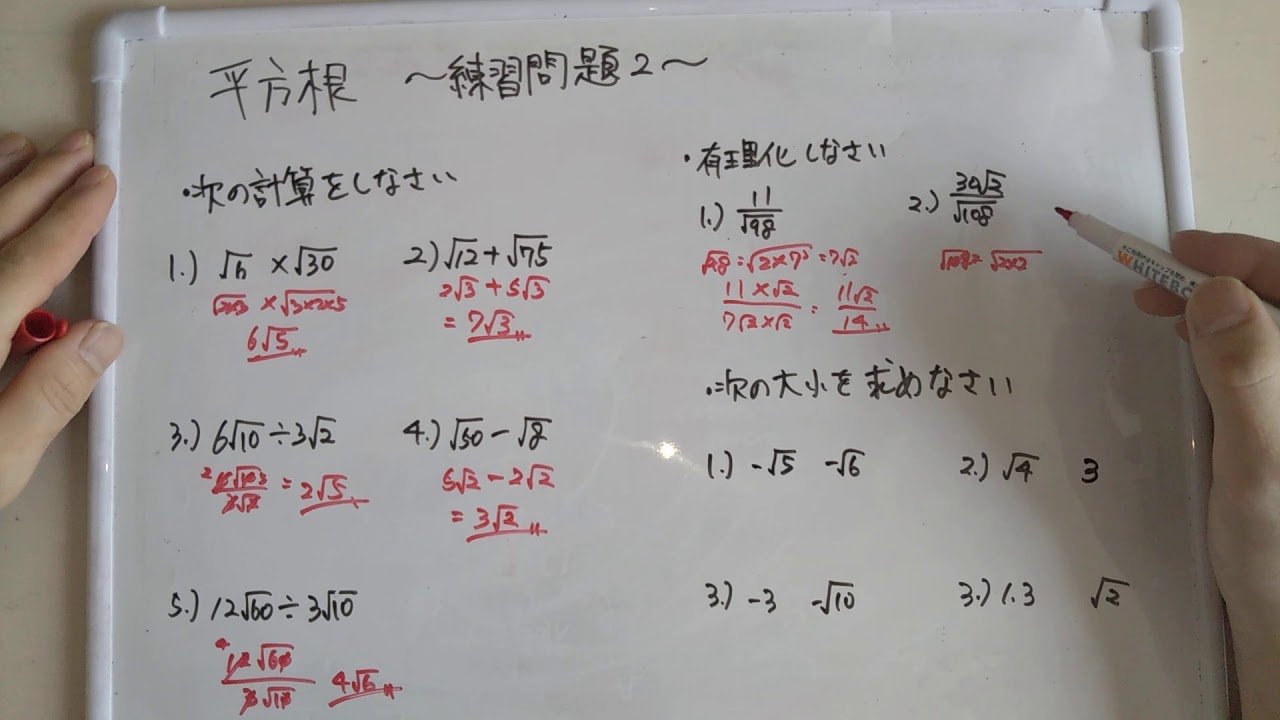 平方根 ～練習問題2～
・次の計算をしなさい
1.) √6 ×√30
√2×3 ×√3×2×5
6√5
2) √12+√75
2√3+5√3
= 7√3
3.) 6√10÷3√2
= 2√5
4.) √50-√8
5√2-2√2
= 3√2
5.) 12√60÷3√10
4√6
・有理化しなさい
1.) 11/√98
√98=√2×7²=7√2
11×√2/7√2×√2 = 11√2/14
2.) 30√2/√108
√108=√2×2
WHITEBO
・次の大小を求めなさい
1.) -√5 -√6
2.) √4 3
3.) -3 -√10
3.) 1.3 √2